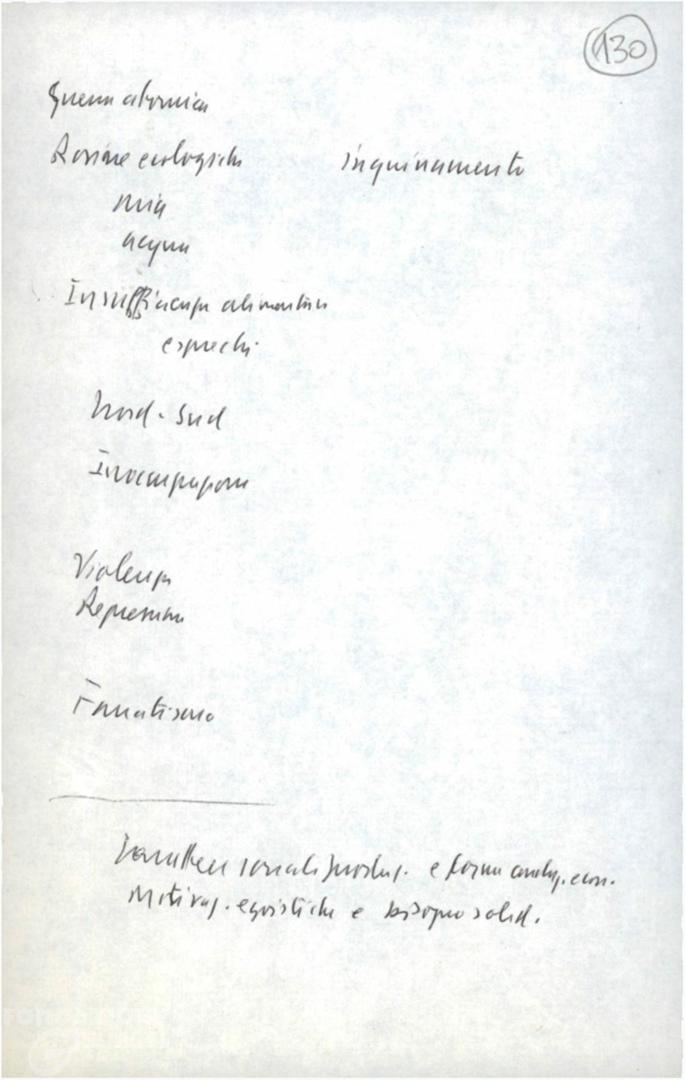 130
Guerra atomica
Rovine ecologiche inquinamento
aria
acqua
Insufficienza alimentare
e sprechi
Nord-Sud
Inoccupazione
Violenza
Repressione
Fanatismo
Carattere sociale produz. e forma econ.
Motivaz. egoistiche e bisogno solid.